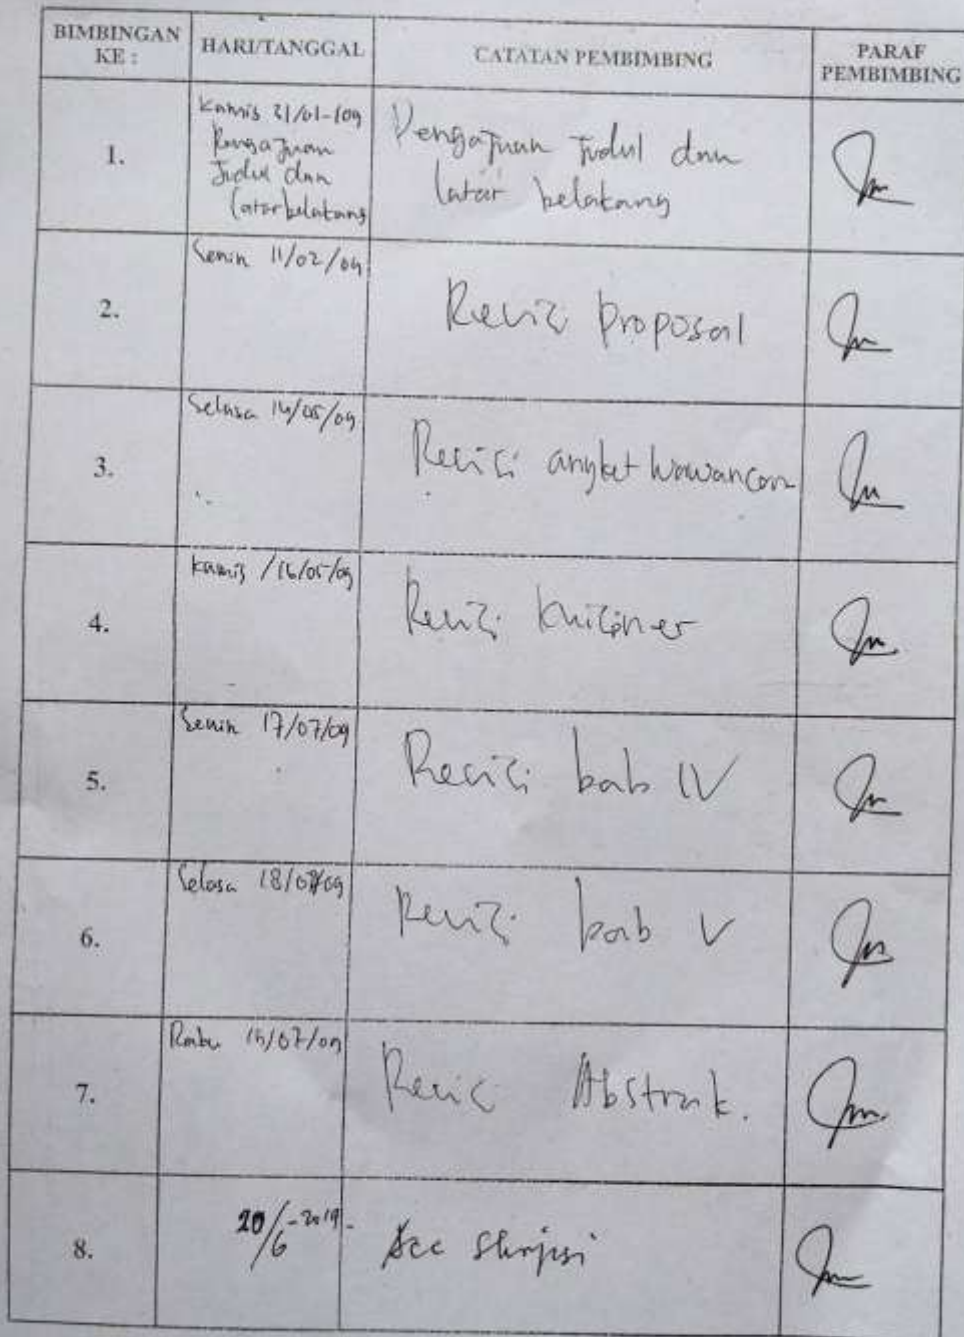 BIMBINGAN KE :
HARI/TANGGAL
CATATAN PEMBIMBING
PARAF PEMBIMBING
1.
Kamis 31/01-109
Pengajuan
Judul dan
latar belakang
Pengajuan Judul dan
latar belakang
2.
Senin 11/02/09
Revisi Proposal
3.
Selasa 14/05/09
Revisi angket wawancara
4.
Kamis /16/05/09
Revisi Kuisioner
5.
Senin 17/07/09
Revisi bab IV
6.
Selasa 18/07/09
Revisi bab V
7.
Rabu /07/09
Revisi Abstrak.
8.
20/6-2019-
Acc Skripsi